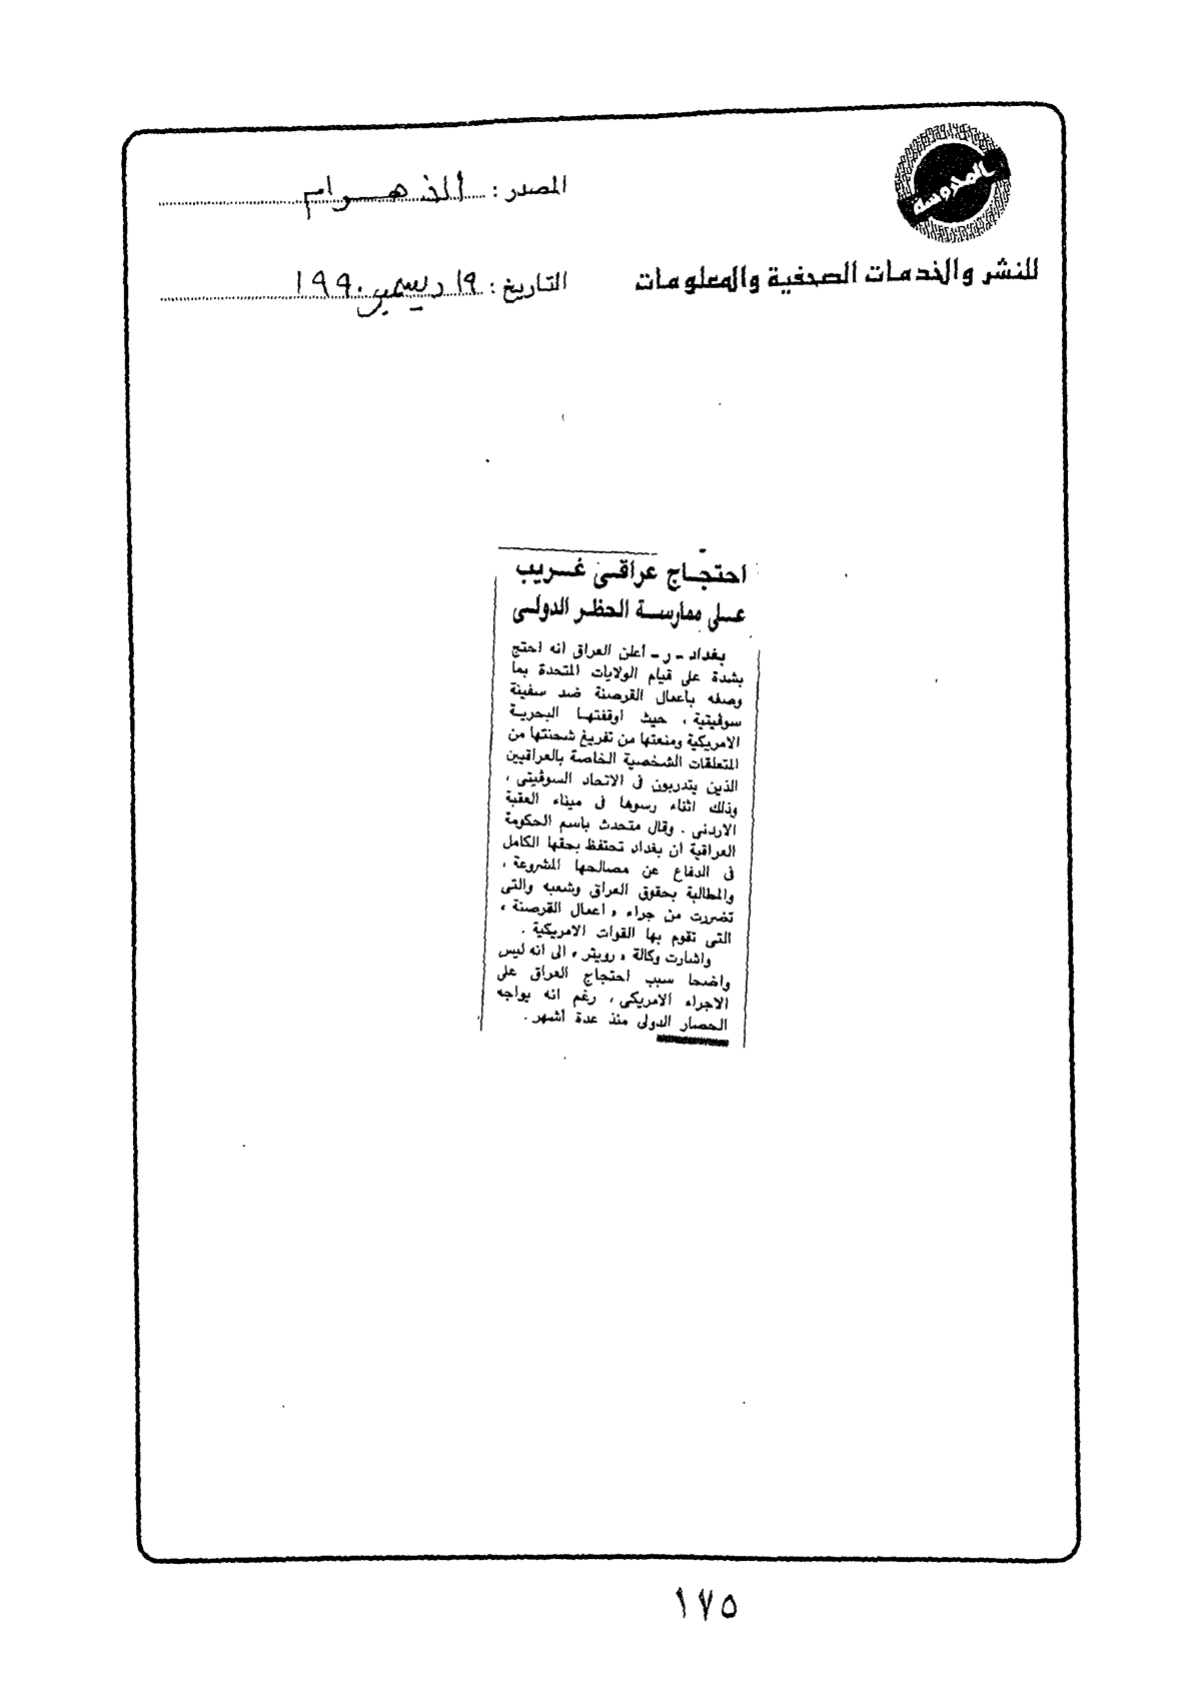 المحروسة
للنشر والخدمات الصحفية والمعلومات
المصدر : الأهرام
التاريخ : ١٩ ديسمبر ١٩٩٠
احتجـاج عراقـى غـريب
عـلى ممارسـة الحظـر الدولـى
بغداد - ر - أعلن العراق انه احتج
بشدة على قيام الولايات المتحدة بما
وصفه بأعمال القرصنة ضد سفينة
سوڤيتية ، حيث أوقفتهـا البحريـة
الامريكية ومنعتها من تفريغ شحنتها من
المتعلقات الشخصية الخاصة بالعراقيين
الذين يتدربون فى الاتحاد السوڤيتى ،
وذلك اثناء رسوها فى ميناء العقبة
الاردنى . وقال متحدث باسم الحكومة
العراقية ان بغداد تحتفظ بحقها الكامل
فى الدفاع عن مصالحها المشروعة ،
والمطالبة بحقوق العراق وشعبه والتى
تضررت من جراء « اعمال القرصنة »
التى تقوم بها القوات الامريكية .
واشارت وكالة « رويتر » الى انه ليس
واضحا سبب احتجاج العراق على
الاجراء الامريكى ، رغم انه يواجه
الحصار الدولى منذ عدة أشهر .
١٧٥